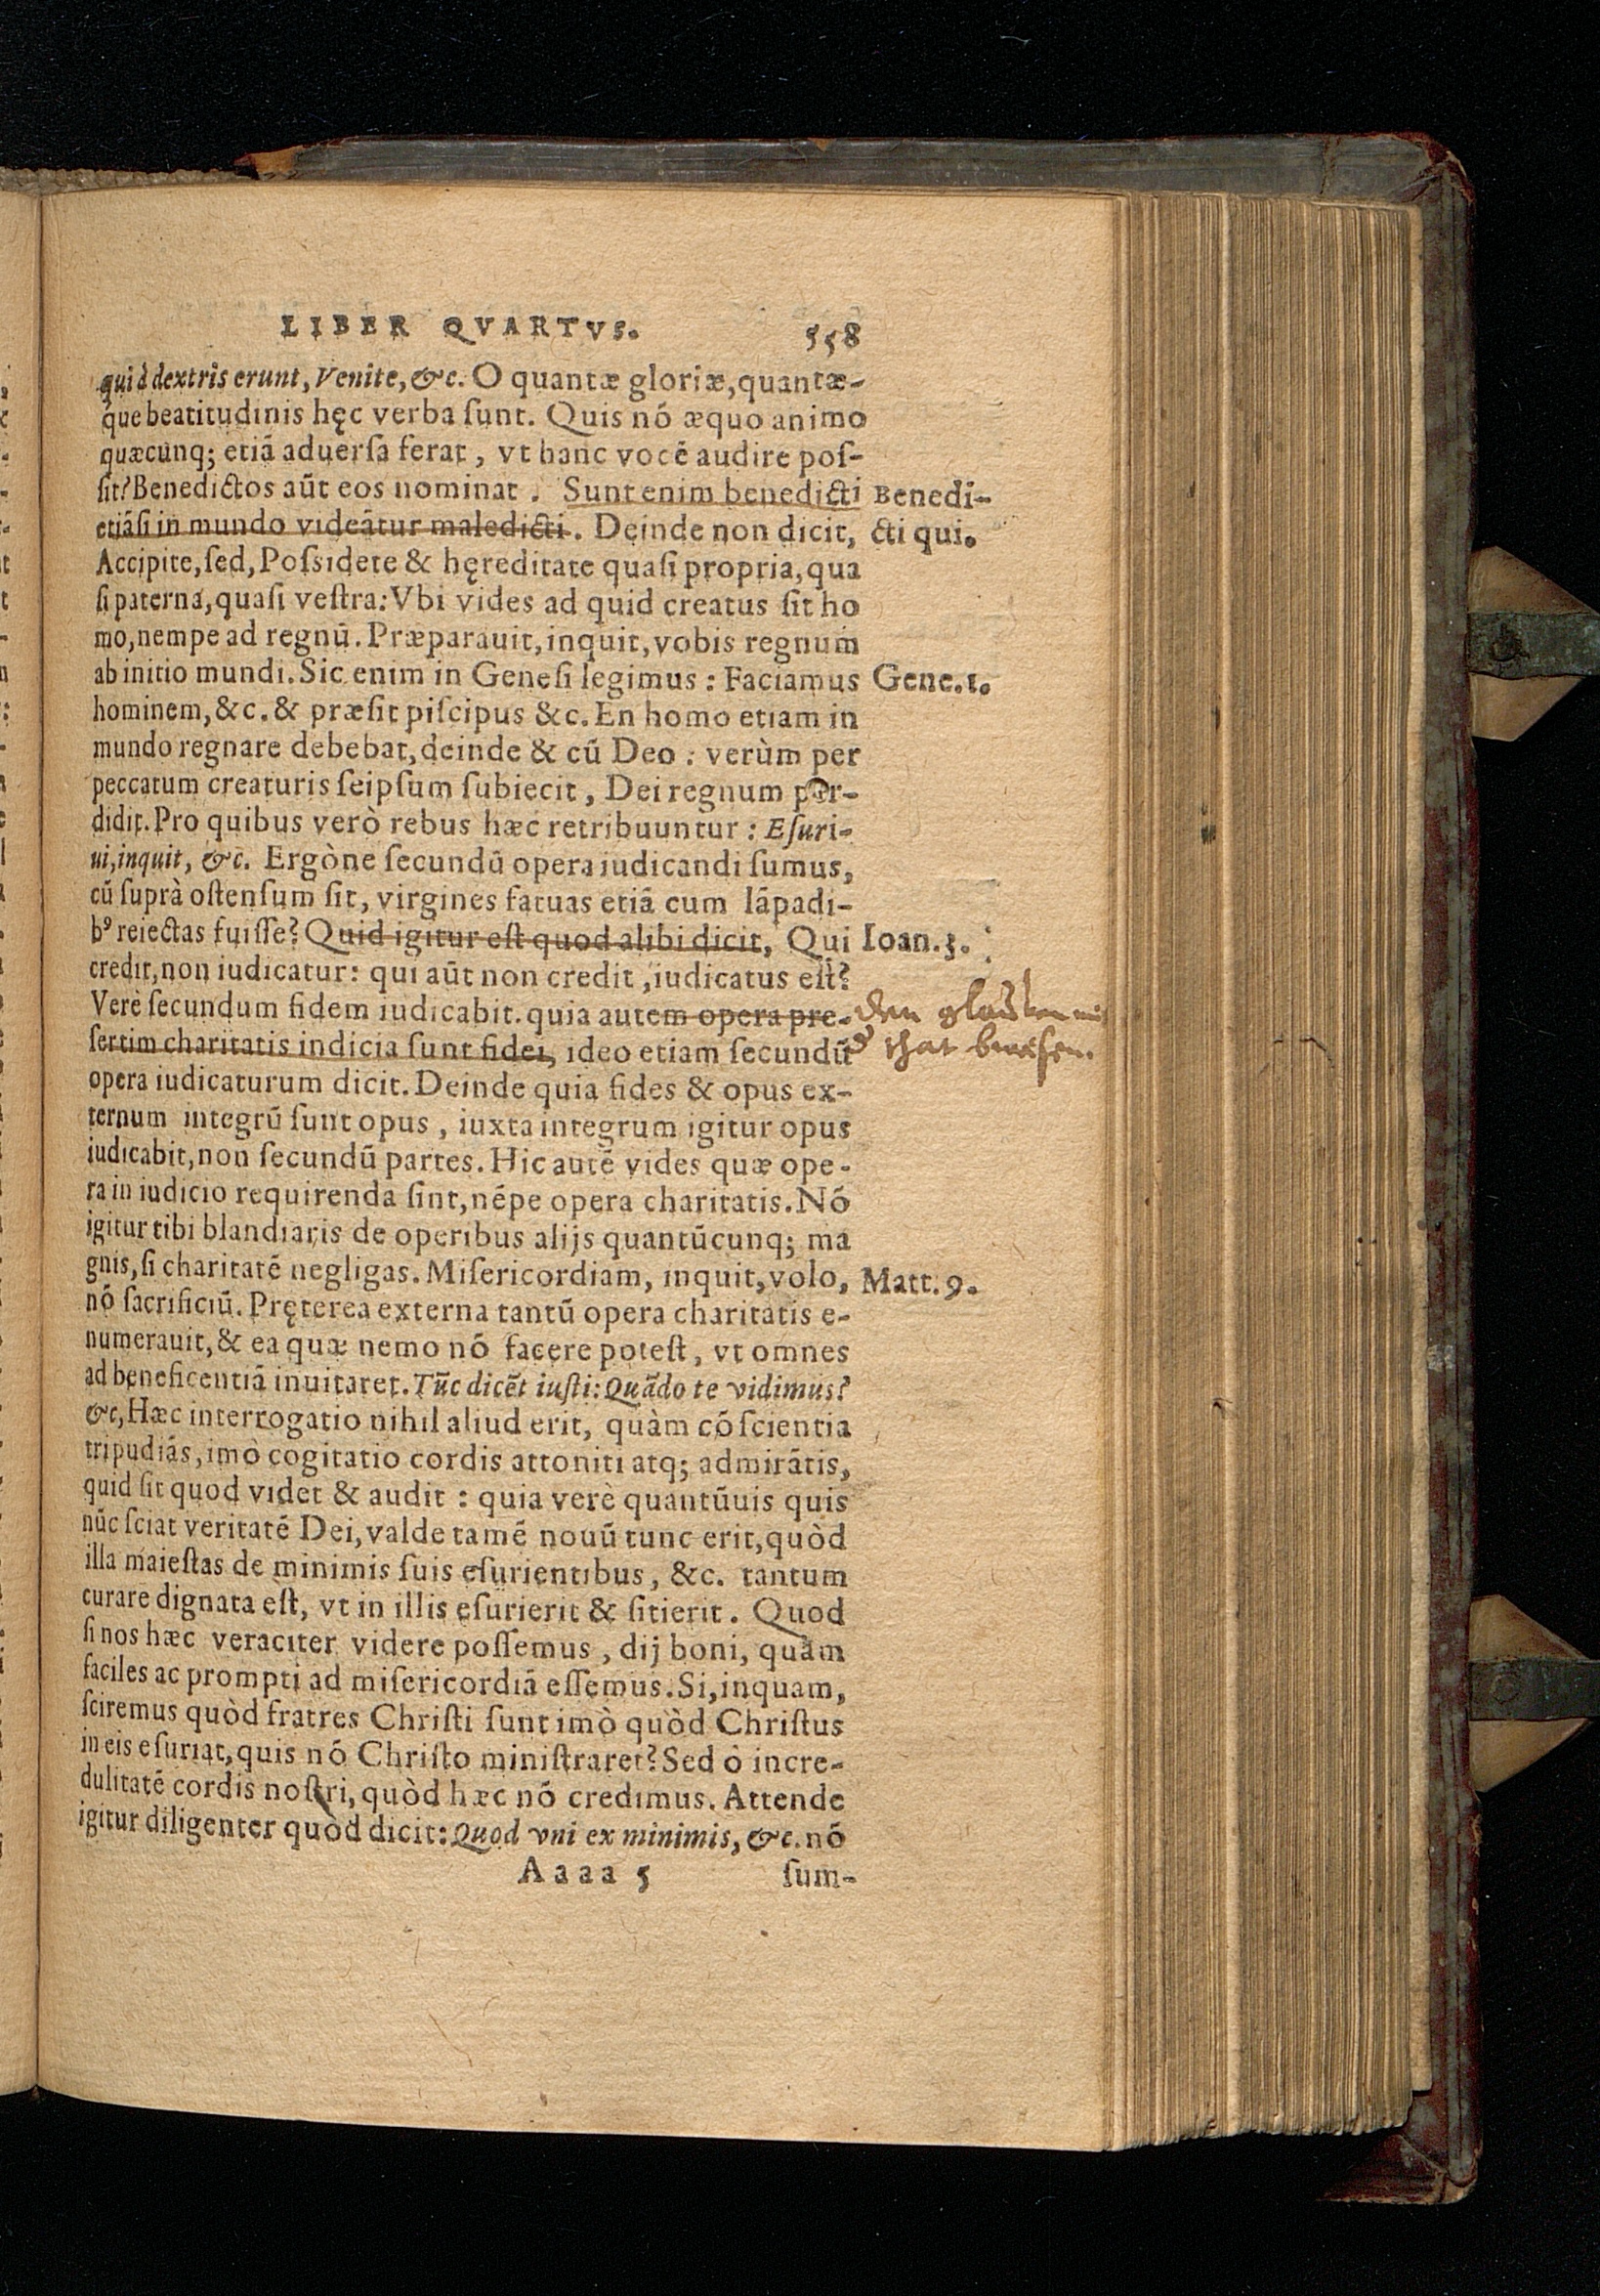 LIBER QVARTVS. 558
qui à dextris erunt, Venite, &c. O quantæ gloriæ, quantæ-
que beatitudinis hęc verba ſunt. Quis nõ æquo animo
quæcunq; etiã aduerſa ferat, vt hanc vocẽ audire poſ-
ſit? Benedictos aũt eos nominat. Sunt enim benedicti
Benedi-
etiãſi in mundo videãtur maledicti. Deinde non dicit,
cti qui.
Accipite, ſed, Poſsidete & hęreditate quaſi propria, qua
ſi paterna, quaſi veſtra: Vbi vides ad quid creatus ſit ho
mo, nempe ad regnũ. Præparauit, inquit, vobis regnum
ab initio mundi. Sic enim in Geneſi legimus: Faciamus
Gene. 1.
hominem, &c. & præſit piſcipus &c. En homo etiam in
mundo regnare debebat, deinde & cũ Deo: verùm per
peccatum creaturis ſeipſum ſubiecit, Dei regnum per-
didit. Pro quibus verò rebus hæc retribuuntur: Eſuri-
ui, inquit, &c. Ergòne ſecundũ opera iudicandi ſumus,
cũ ſuprà oſtenſum ſit, virgines fatuas etiã cum lãpadi-
bꝰ reiectas fuiſſe? Quid igitur eſt quod alibi dicit, Qui
Ioan. 3.
credit, non iudicatur: qui aũt non credit, iudicatus eſt?
Verè ſecundum fidem iudicabit. quia autem opera pre-
den glauben mit
ſertim charitatis indicia ſunt fidei, ideo etiam ſecundũ
d' that beweisen.
opera iudicaturum dicit. Deinde quia fides & opus ex-
ternum integrũ ſunt opus, iuxta integrum igitur opus
iudicabit, non ſecundũ partes. Hic autẽ vides quæ ope-
ra in iudicio requirenda ſint, nẽpe opera charitatis. Nõ
igitur tibi blandiaris de operibus alijs quantũcunq; ma
gnis, ſi charitatẽ negligas. Miſericordiam, inquit, volo,
Matt. 9.
nõ ſacrificiũ. Pręterea externa tantũ opera charitatis e-
numerauit, & ea quæ nemo nõ facere poteſt, vt omnes
ad beneficentiã inuitaret. Tũc dicẽt iuſti: Quãdo te vidimus?
&c, Hæc interrogatio nihil aliud erit, quàm cõſcientia
tripudiãs, imò cogitatio cordis attoniti atq; admirãtis,
quid ſit quod videt & audit: quia verè quantũuis quis
nũc ſciat veritatẽ Dei, valde tamẽ nouũ tunc erit, quòd
illa maieſtas de minimis ſuis eſurientibus, &c. tantum
curare dignata eſt, vt in illis eſurierit & ſitierit. Quod
ſi nos hæc veraciter videre poſſemus, dij boni, quàm
faciles ac prompti ad miſericordiã eſſemus. Si, inquam,
ſciremus quòd fratres Chriſti ſunt imò quòd Chriſtus
in eis eſuriat, quis nõ Chriſto miniſtraret? Sed ò incre-
dulitatẽ cordis noſtri, quòd hæc nõ credimus. Attende
igitur diligenter quòd dicit: Quod vni ex minimis, &c. nõ
Aaaa 5 ſum-